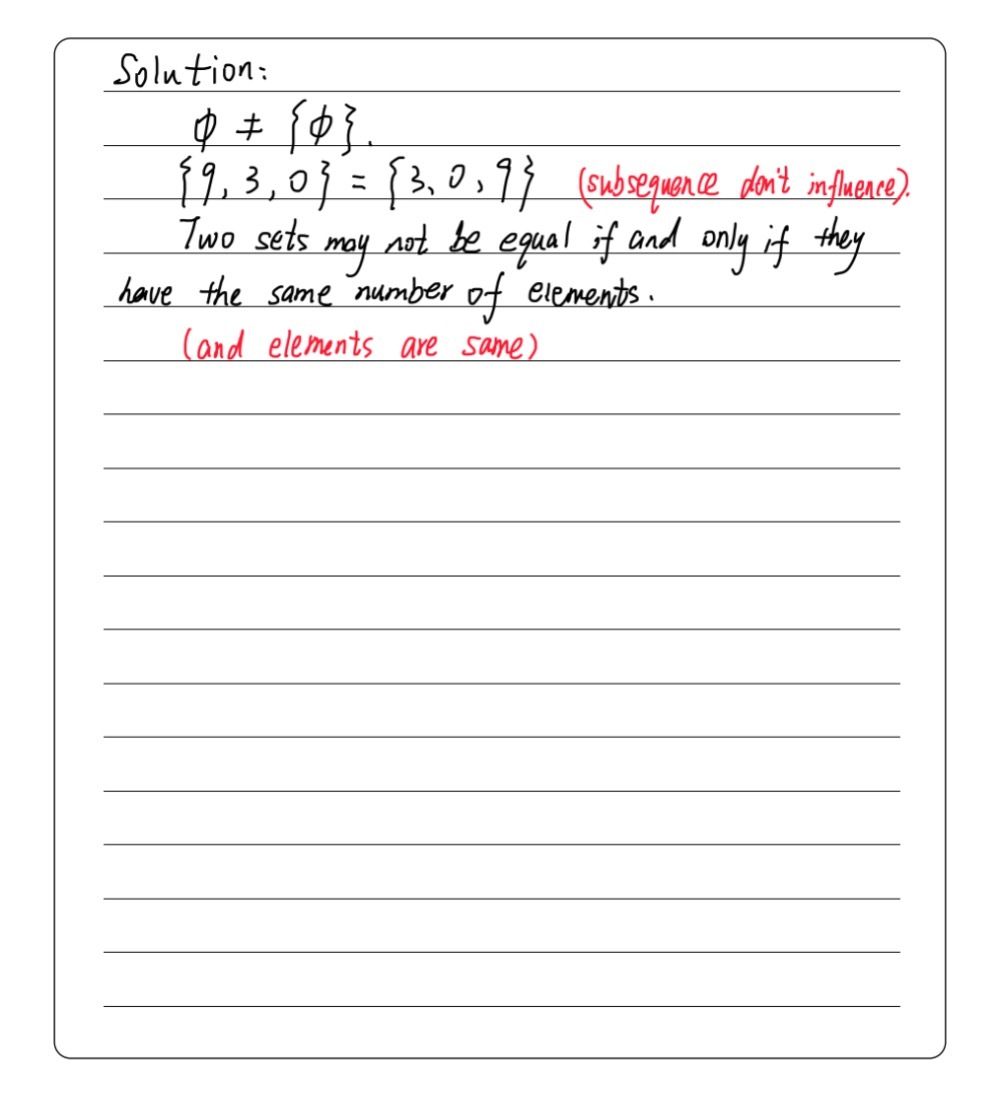 Solution:
ϕ ≠ {ϕ}.
{9, 3, 0} = {3、0, 9} (subsequence don't influence).
Two sets may not be equal if and only if they
have the same number of elements.
(and elements are same)